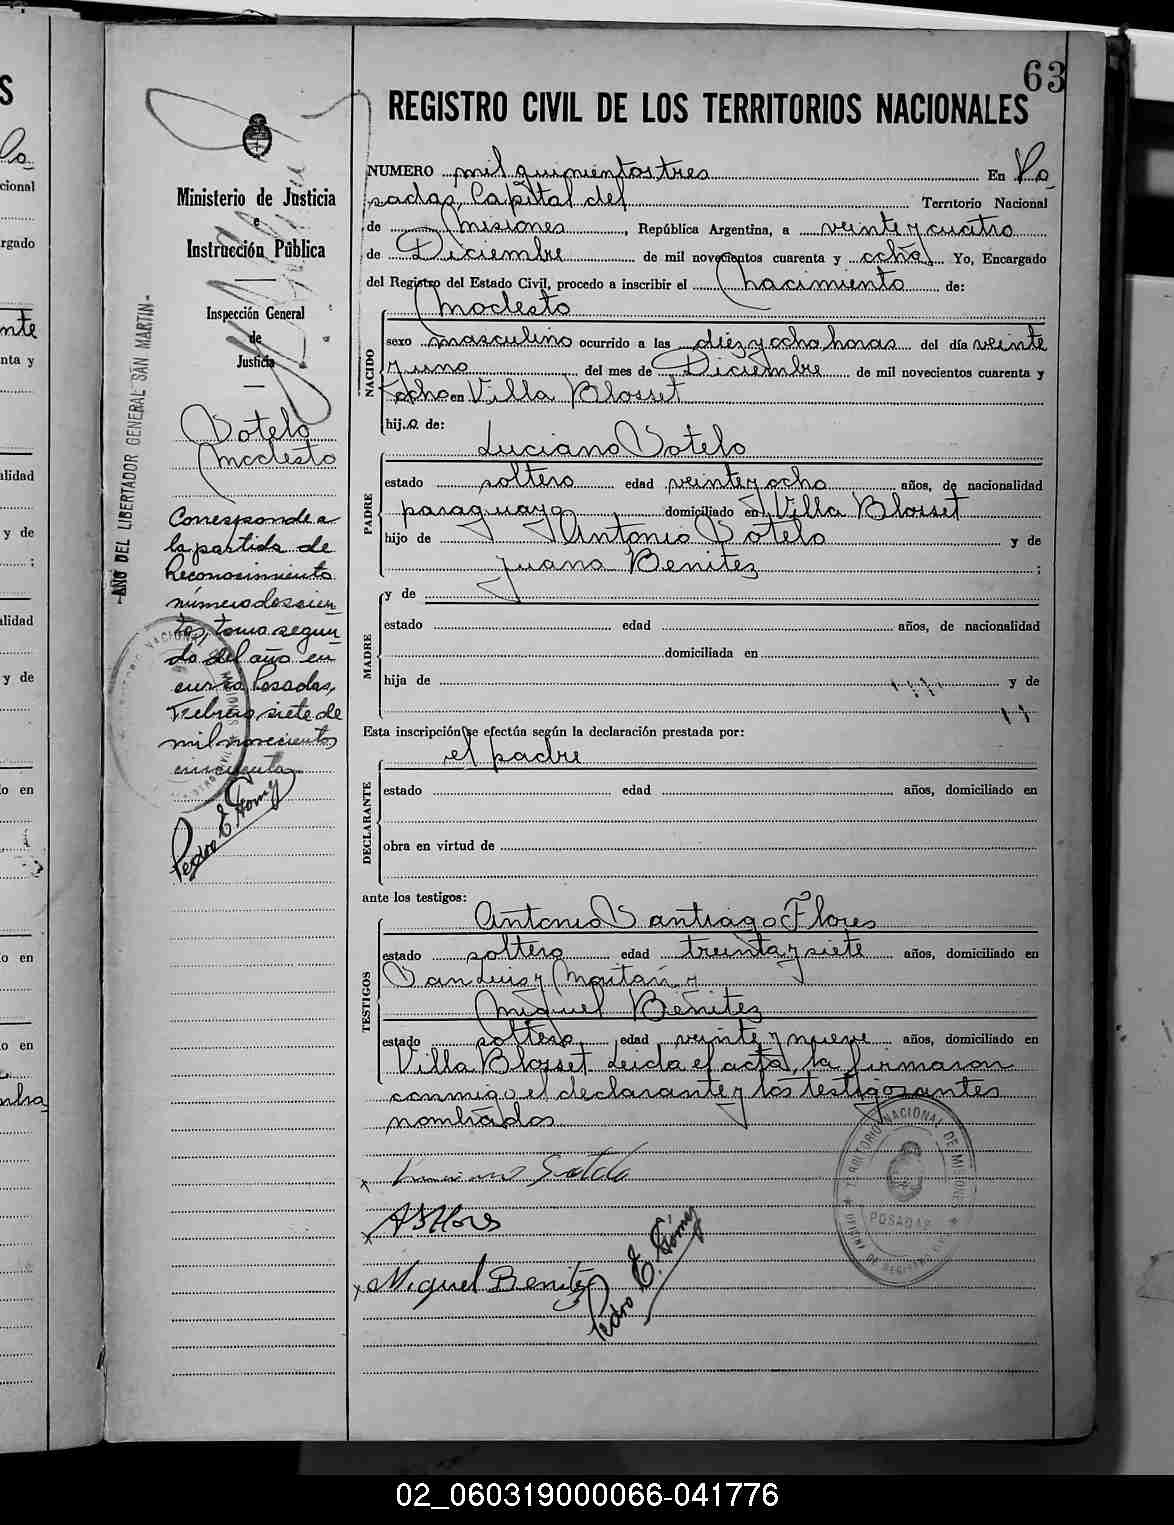 63
REGISTRO CIVIL DE LOS TERRITORIOS NACIONALES
Ministerio de Justicia
e
Instrucción Pública
Inspección General
de
Justicia
-AÑO DEL LIBERTADOR GENERAL SAN MARTIN-
Sotelo
Modesto
Corresponde a
la partida de
Reconocimiento
número doscien
tos, tomo segun
do del año en
curso Posadas,
Febrero siete de
mil novecientos
cincuenta
Pedro E. Gómez
NUMERO mil quinientos tres En Po
sadas, Capital del Territorio Nacional
de Misiones, República Argentina, a veinte y cuatro
de Diciembre de mil novecientos cuarenta y ocho. Yo, Encargado
del Registro del Estado Civil, procedo a inscribir el Nacimiento de:
NACIDO
Modesto
sexo masculino ocurrido a las diez y ocho horas del día veinte
y uno del mes de Diciembre de mil novecientos cuarenta y
ocho en Villa Blosset
hij.o de:
PADRE
Luciano Sotelo
estado soltero edad veinte y ocho años, de nacionalidad
paraguayo domiciliado en Villa Blosset
hijo de Antonio Sotelo y de
Juana Benitez ;
MADRE
y de
estado edad años, de nacionalidad
domiciliada en
hija de y de
Esta inscripción se efectúa según la declaración prestada por:
DECLARANTE
el padre
estado edad años, domiciliado en
obra en virtud de
ante los testigos:
TESTIGOS
Antonio Santiago Flores
estado soltero edad treinta y siete años, domiciliado en
San Luis y
Miguel Benitez
estado soltero, edad veinte y nueve años, domiciliado en
Villa Blosset. Leida el acta, la firmaron
conmigo el declarante y los testigos antes
nombrados
x Luciano Sotelo
x A S Flores
x Miguel Benitez
Pedro E. Gómez
TERRITORIO NACIONAL DE MISIONES
POSADAS
02_060319000066-041776